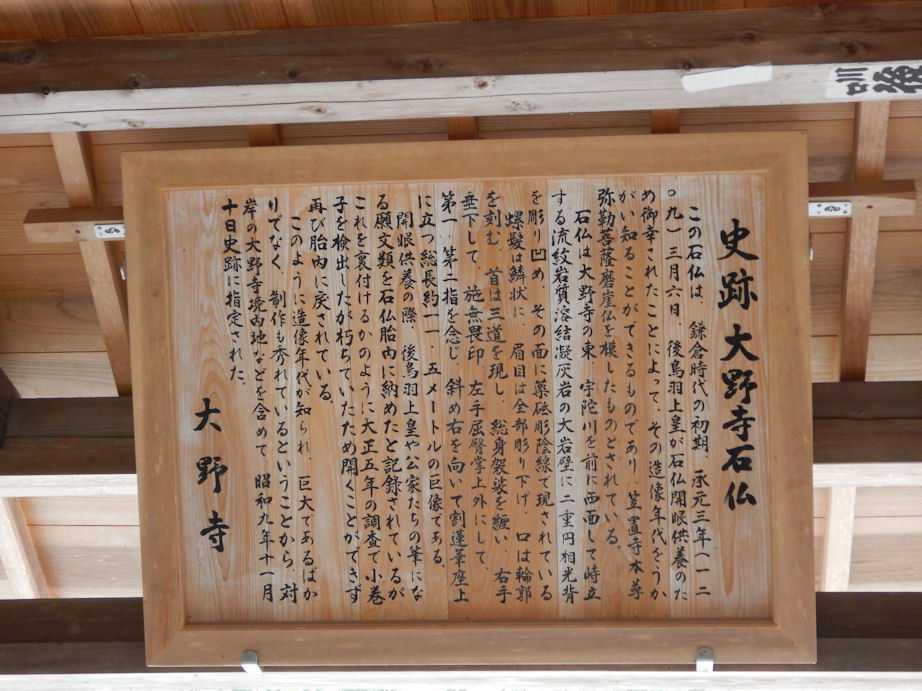 史跡 大野寺石仏
この石仏は、鎌倉時代の初期、承元三年(一二
〇九)三月六日、後鳥羽上皇が石仏開眼供養のた
め御幸されたことによって、その造像年代をうか
がい知ることができるものであり、笠置寺本尊
弥勒菩薩磨崖仏を模したものとされている。
石仏は大野寺の東、宇陀川を前に西面して峙立
する流紋岩質溶結凝灰岩の大岩壁に二重円相光背
を彫り凹め、その面に薬研彫陰線で現されている
螺髪は鱗状に、眉目は全部彫り下げ、口は輪郭
を刻む。首は三道を現し、総身袈裟を纏い、右手
垂下して、施無畏印、左手屈臂掌上外にして、
第一、第二指を念じ、斜め右を向いて割蓮華座上
に立つ総長約一一.五メートルの巨像である。
開眼供養の際、後鳥羽上皇や公家たちの筆にな
る願文類を石仏胎内に納めたと記録されているが
これを裏付けるかのように大正五年の調査で小巻
子を検出したが朽ちていたため開くことができず
再び胎内に戻されている。
このように造像年代が知られ、巨大であるばか
りでなく、制作も秀れているということから、対
岸の大野寺境内地などを含めて、昭和九年十一月
十日史跡に指定された。
大野寺